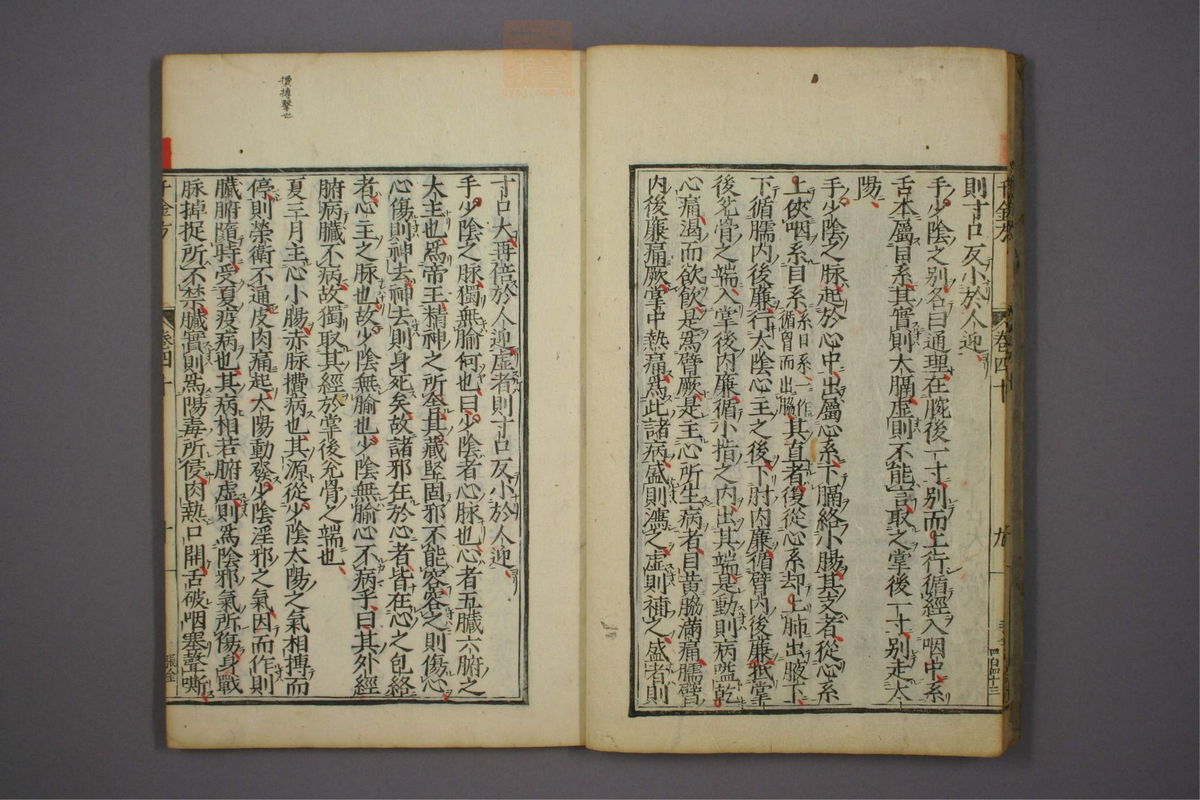 千金方 卷四十 九 四百四十三
則寸口反小於人迎
手少陰之別名曰通理在腕後一寸別而上行循經入咽中系
舌本屬目系其實則大膈虛則不能言取之掌後一寸別走太
陽
手少陰之脉起於心中出屬心系下膈絡小腸其支者從心系
上俠咽系目系系目系一作循胷而出脇其直者復從心系却上肺出腋下
下循臑內後廉行太陰心主之後下肘內廉循臂內後廉抵掌
後兌骨之端入掌後內廉循小指之內出其端是動則病嗌乾
心痛渴而欲飲是爲臂厥是主心所生病者目黃脇滿痛臑臂
內後廉痛厥掌中熱痛爲此諸病盛則瀉之虛則補之盛者則
寸口大再倍於人迎虛者則寸口反小於人迎
手少陰之脉獨無腧何也曰少陰者心脉也心者五臟六腑之
大主也爲帝王精神之所舍其藏堅固邪不能容容之則傷心
心傷則神去神去則身死矣故諸邪在於心者皆在心之包絡包絡
者心主之脉也故少陰無腧也少陰無腧心不病乎曰其外經
腑病臟不病故獨取其經於掌後兌骨之端也
夏三月主心小腸赤脉攢病也其源從少陰太陽之氣相搏而
停則榮衛不通皮肉痛起太陽動發少陰淫邪之氣因而作則
臟腑隨時受夏疫病也其病相若腑虛則爲陰邪氣所傷身戰
脉掉捉所不禁臟實則爲陽毒所侵肉熱口開舌破咽塞聲嘶
千金方 卷四十 十
攢搏擊也